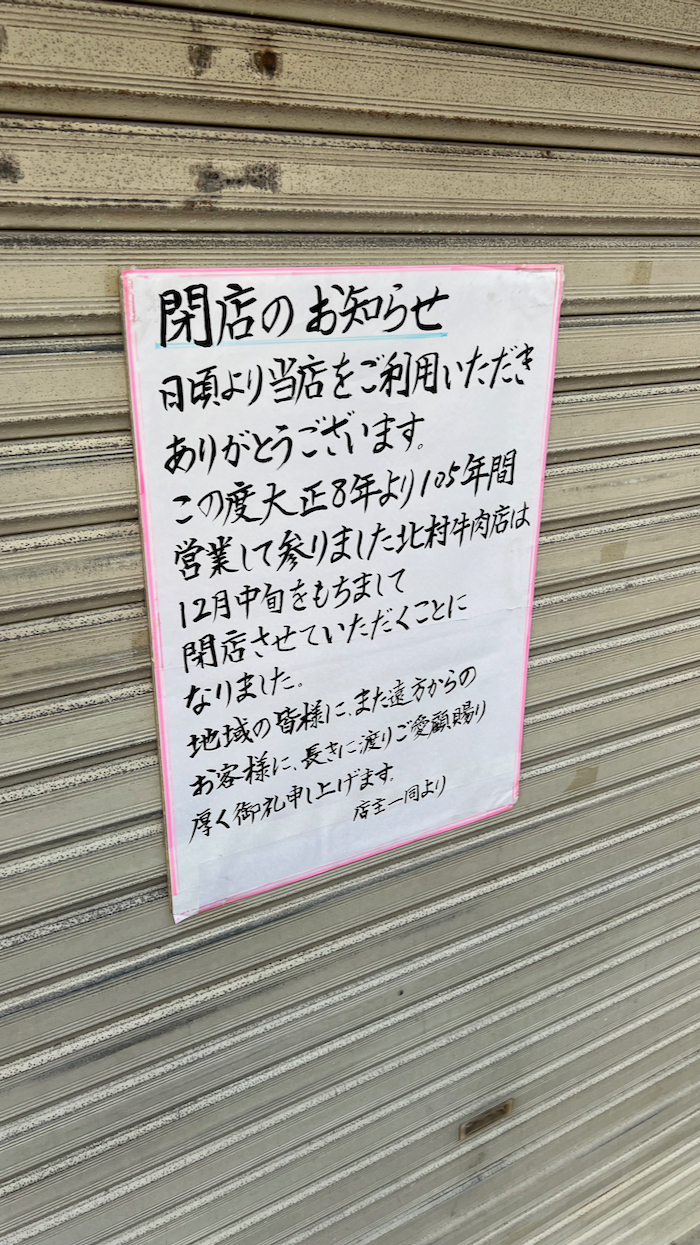 閉店のお知らせ
日頃より当店をご利用いただき
ありがとうございます。
この度大正8年より105年間
営業して参りました北村牛肉店は
12月中旬をもちまして
閉店させていただくことに
なりました。
地域の皆様に、また遠方からの
お客様に、長きに渡りご愛顧賜り
厚く御礼申し上げます。
店主一同より